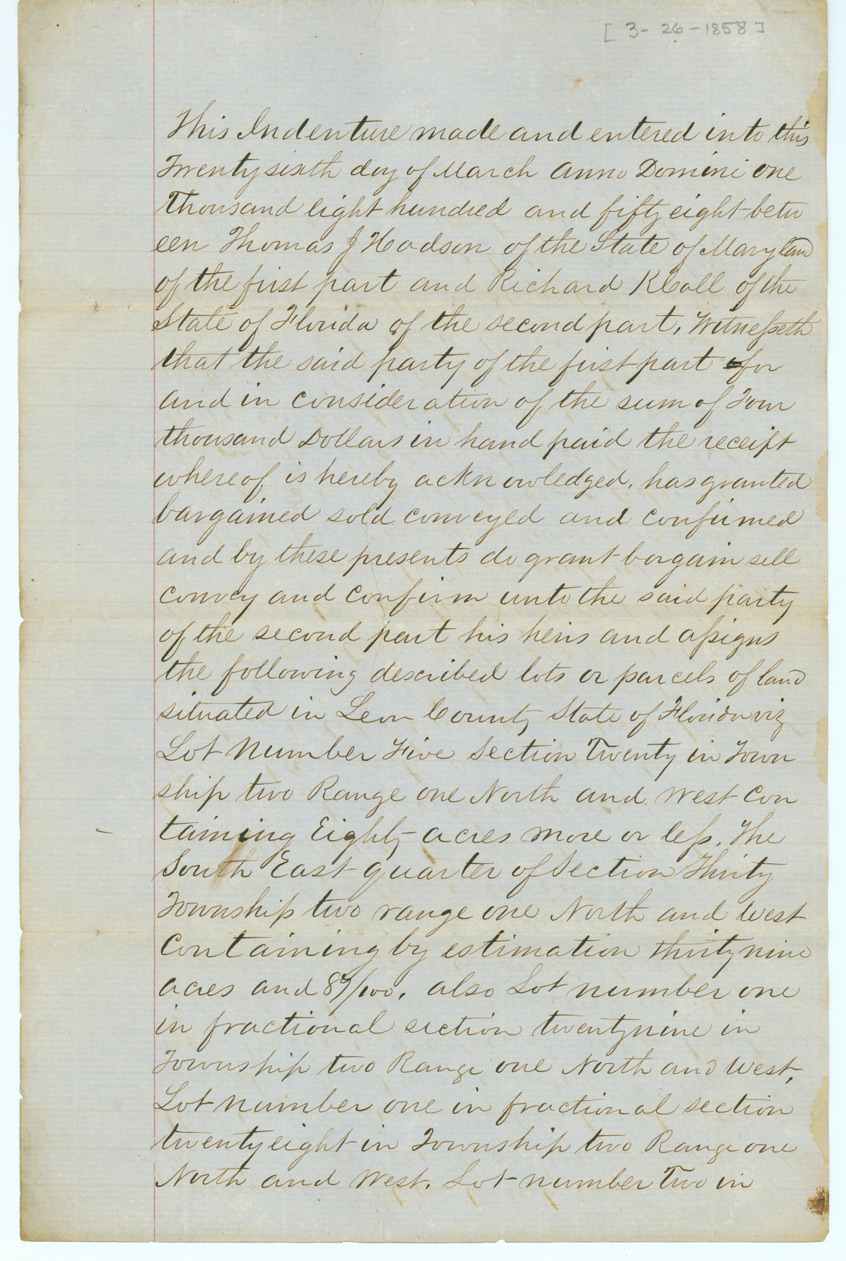 [ 3- 26 -1858 ]
This Indenture made and entered into this
Twenty sixth day of March Anno Domini one
Thousand Eight hundred and fifty eight betw
een Thomas J Hodson of the State of Maryland
of the first part and Richard K Call of the
State of Florida of the second part, Witnesseth
that the said party of the first part for
and in consideration of the sum of Four
thousand Dollars in hand paid the receipt
whereof is hereby acknowledged, has granted
bargained sold conveyed and confirmed
and by these presents do grant bargain sell
convey and confirm unto the said party
of the second part his heirs and assigns
the following described lots or parcels of land
situated in Leon County State of Florida viz
Lot Number Five Section Twenty in Town
ship two Range one North and West Con
taining Eighty acres more or less. The
South East quarter of Section Thirty
Township two range one North and West
Containing by estimation thirty nine
acres and 87/100, also Lot number one
in fractional section twenty nine in
Township two Range one North and West,
Lot number one in fractional section
twenty eight in Township two Range one
North and West. Lot number Two in